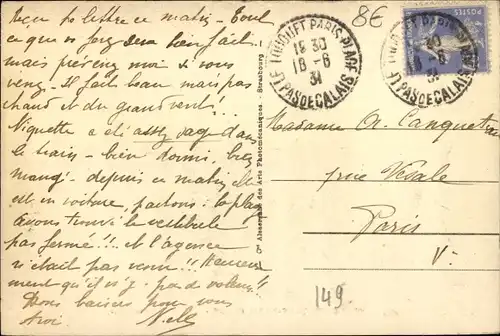 Reçu ta lettre ce matin - Tout
ce que vs ferez sera bien fait
mais prévenez moi si vous
venez - Il fait beau mais pas
chaud et du grand vent !!
Niquette a été assez sage dans
le train - bien dormi, bien
mangé - depuis ce matin elle
est en voiture, partout : la plage
Avons trouvé le vestibule
pas fermé !!! et l'agence
n'était pas venue !! Heureuse
ment qu'il n'y a pas de voleurs !
Bons baisers pour vous
trois Nell
Cie Alsacienne des Arts Photomécaniques - Strasbourg
8€
LE TOUQUET PARIS-PLAGE
18 30
18-6
31
PAS DE CALAIS
POSTES
LE TOUQUET PARIS-PLAGE
30
-6
31
PAS DE CALAIS
Madame A. Canquetin
rue Vésale
Paris
V.
149